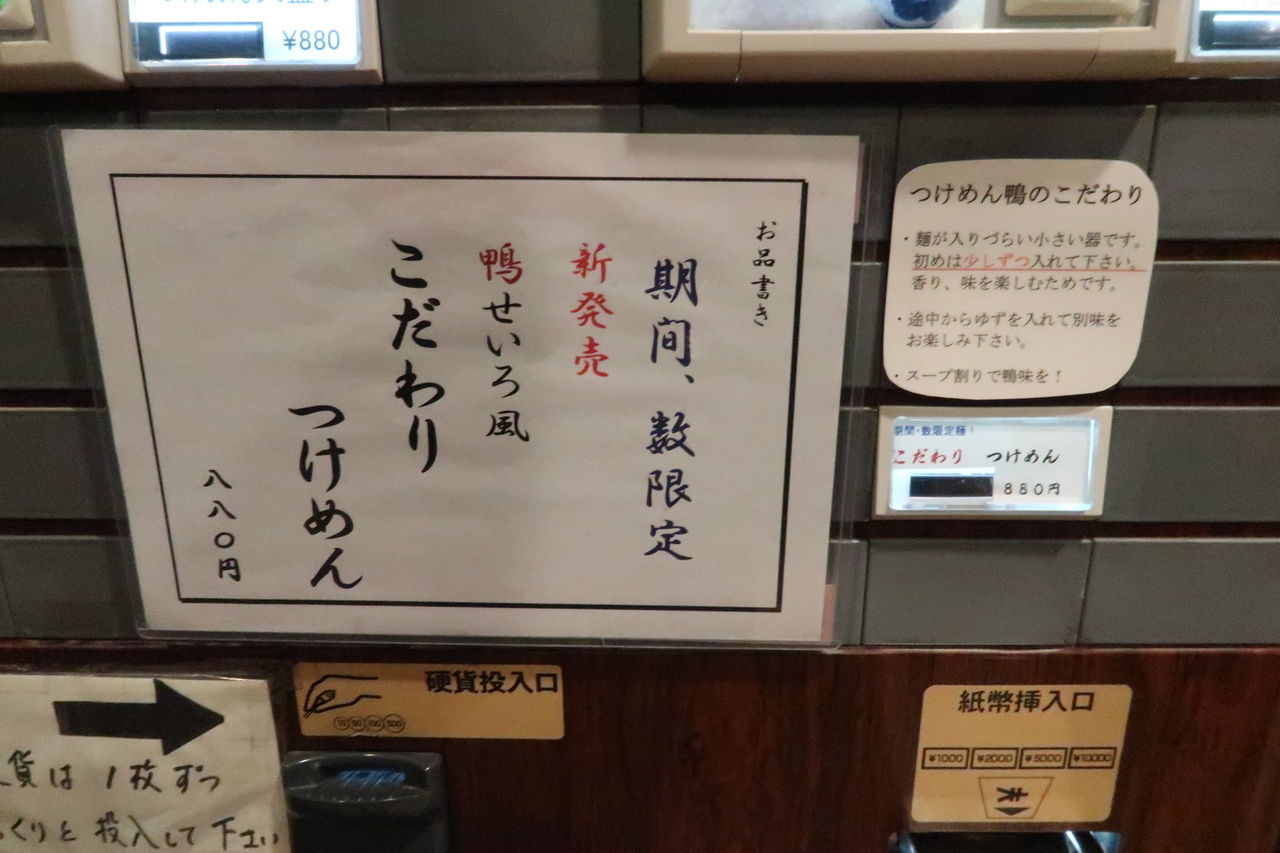 ¥880
お品書き
期間、数限定
新発売
鴨せいろ風
こだわり
つけめん
八八〇円
つけめん鴨のこだわり
・麺が入りづらい小さい器です。
初めは少しずつ入れて下さい。
香り、味を楽しむためです。
・途中からゆずを入れて別味を
お楽しみ下さい。
・スープ割りで鴨味を！
期間・数限定麺！
こだわり つけめん
880円
硬貨投入口
10 50 100 500
貨は1枚ずつ
くりと投入して下さい
紙幣挿入口
¥1000 ¥2000 ¥5000 ¥10000